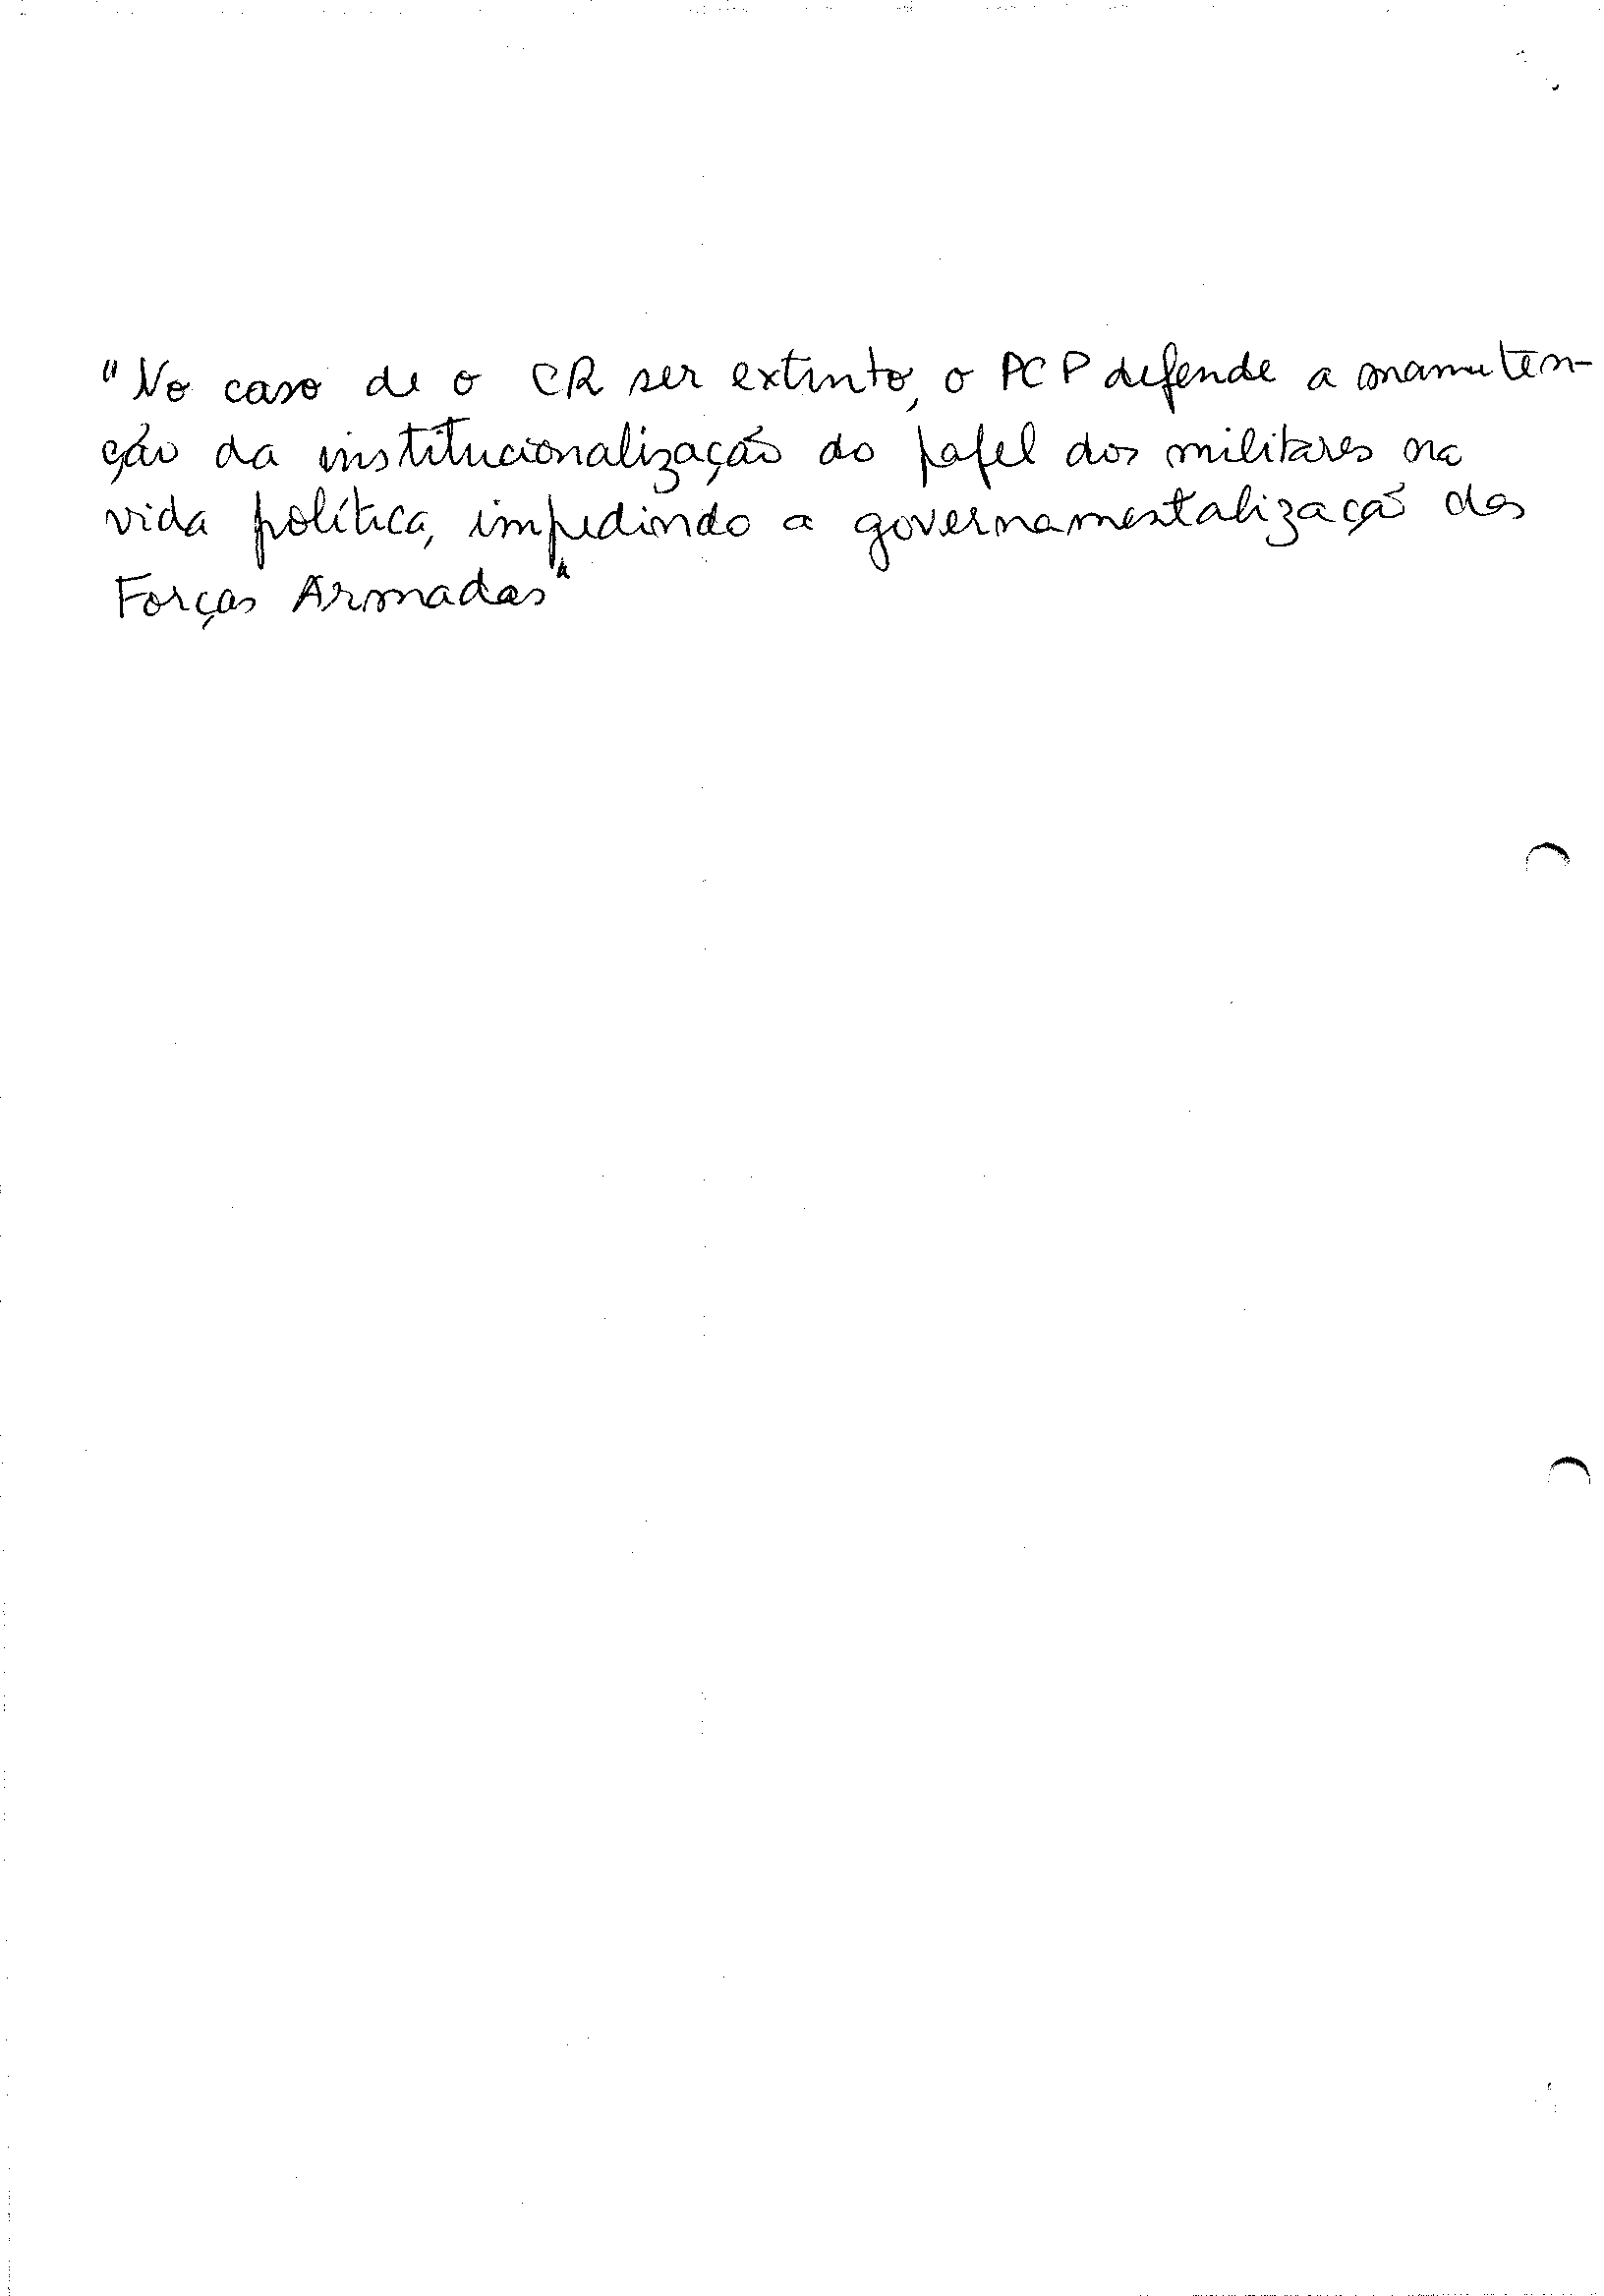 "No caso de o CR ser extinto, o PCP defende a manuten-
ção da institucionalização do papel dos militares na
vida política, impedindo a governamentalização das
Forças Armadas"